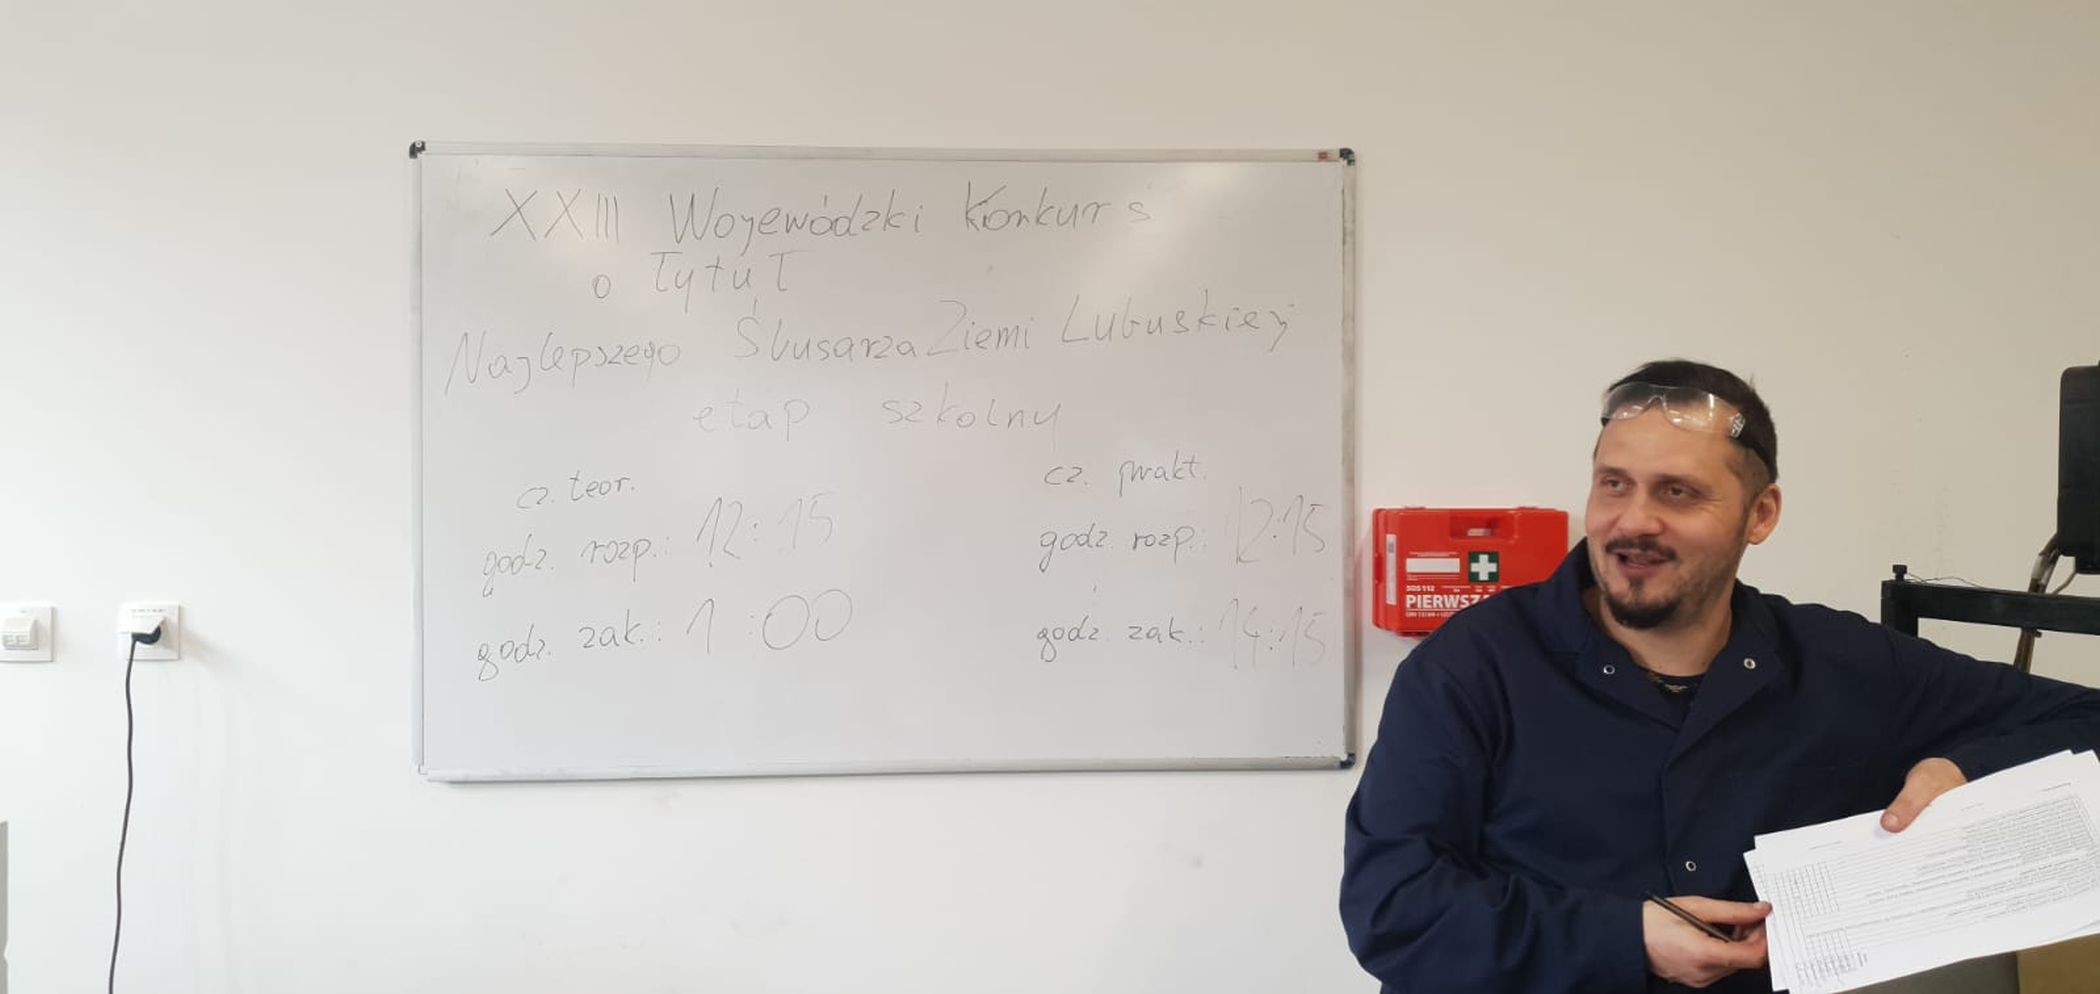 XXIII Wojewódzki Konkurs
o Tytuł
Najlepszego Ślusarza Ziemi Lubuskiej
etap szkolny
cz. teor.
godz. rozp.: 12:15
godz. zak.: 1 :00
cz. prakt.
godz. rozp.: 12:15
godz. zak.: 14:15
PIERWSZA